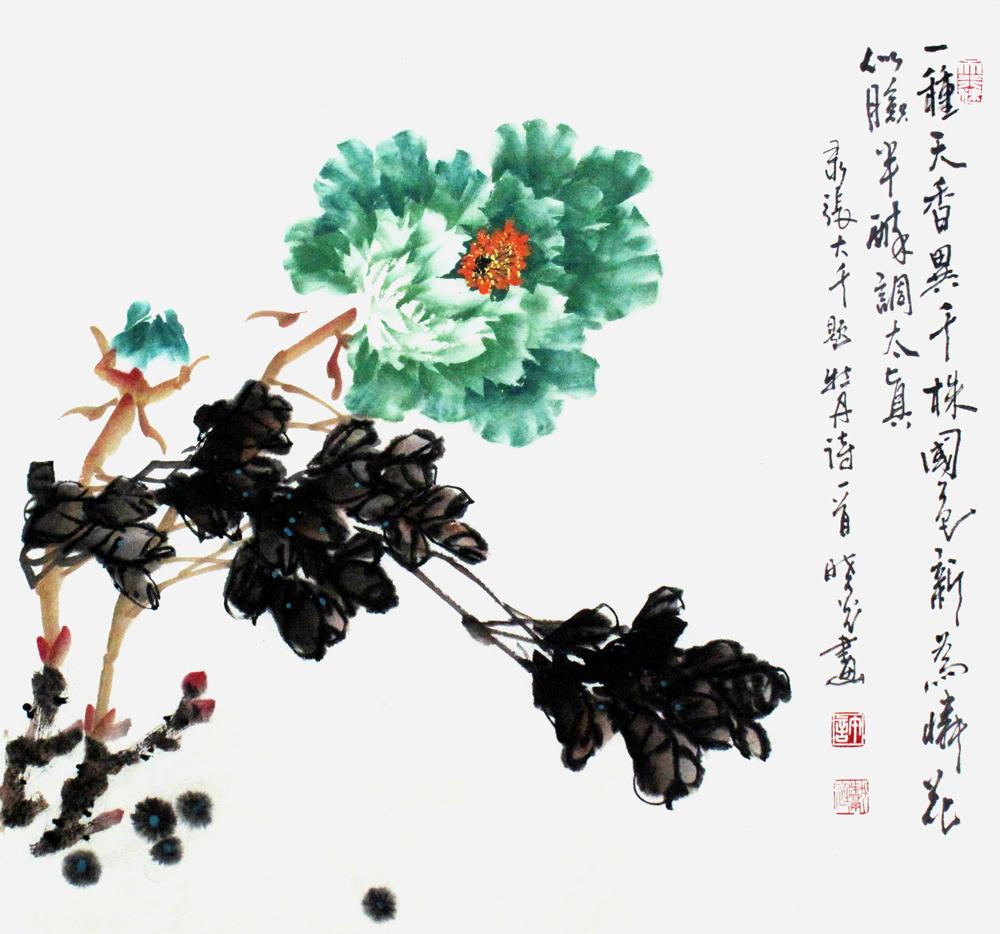 一種天香異千株國色新為憐花
似臉半醉調太真
录張大千題牡丹詩一首
畫